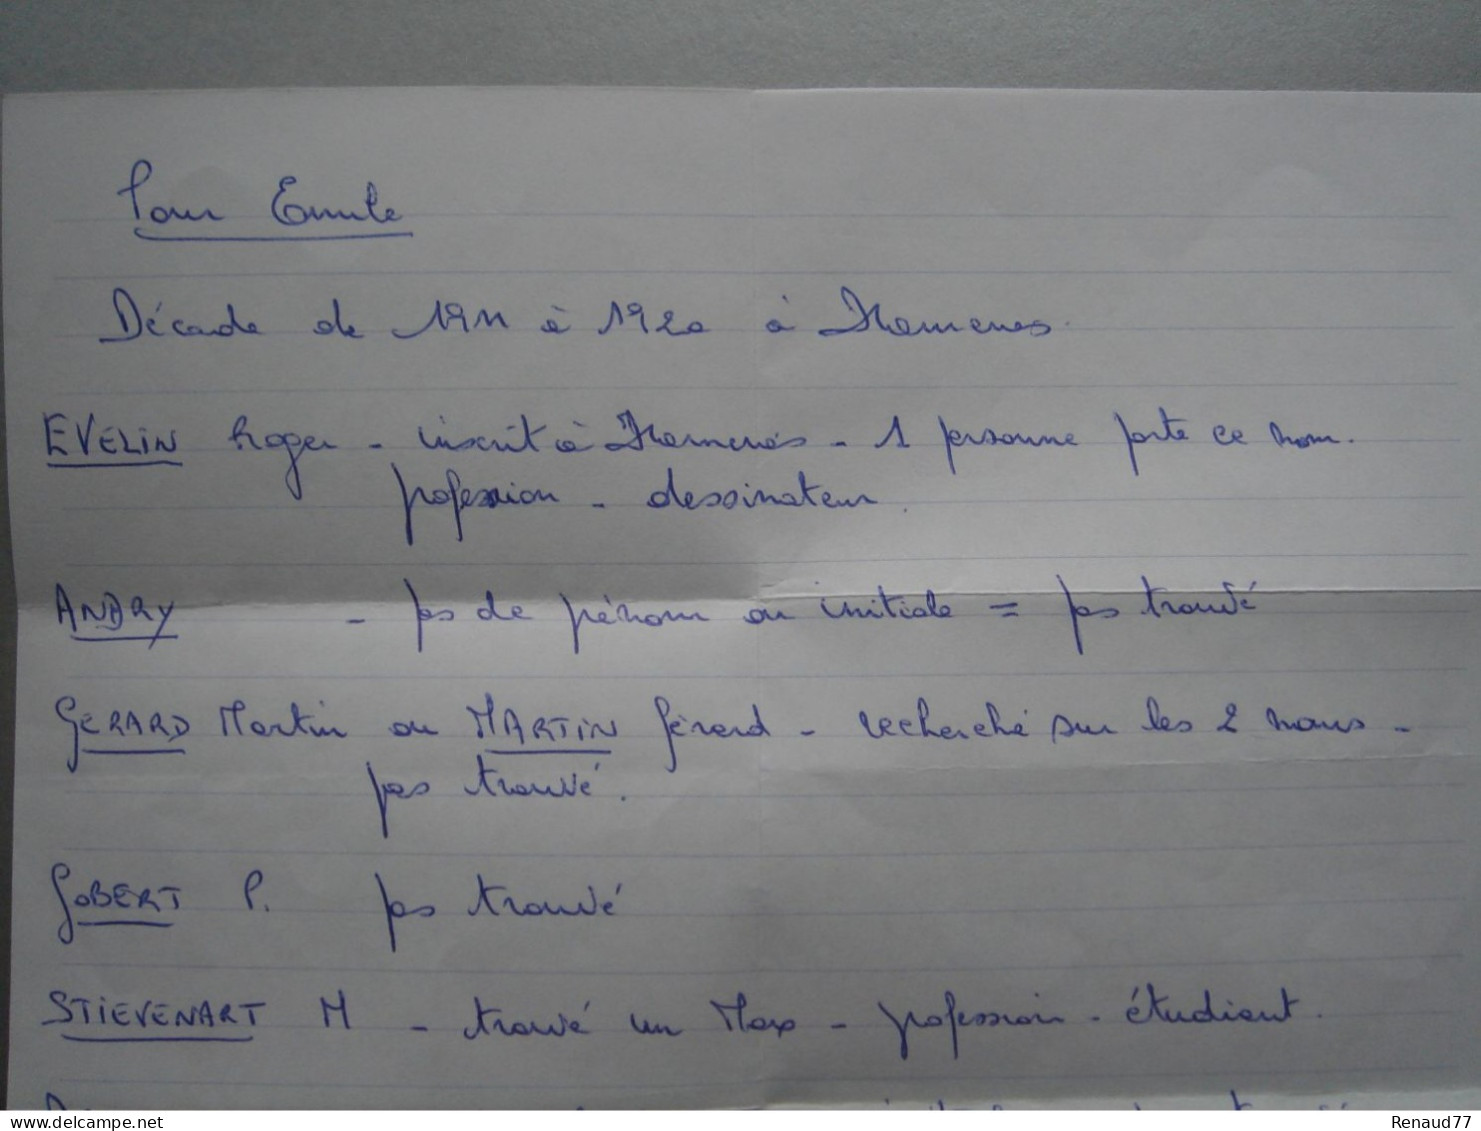 Pour Emile
Décade de 1911 à 1920 à
EVELIN Roger - inscrit à - 1 personne porte ce nom.
profession - dessinateur.
ANDRY - pas de prénom ou initiale = pas trouvé
GERARD Martin ou MARTIN Gérard - recherché sur les 2 noms -
pas trouvé.
GOBERT P. pas trouvé
STIEVENART M - trouvé un Max - profession - étudiant.
delcampe.net
Renaud77